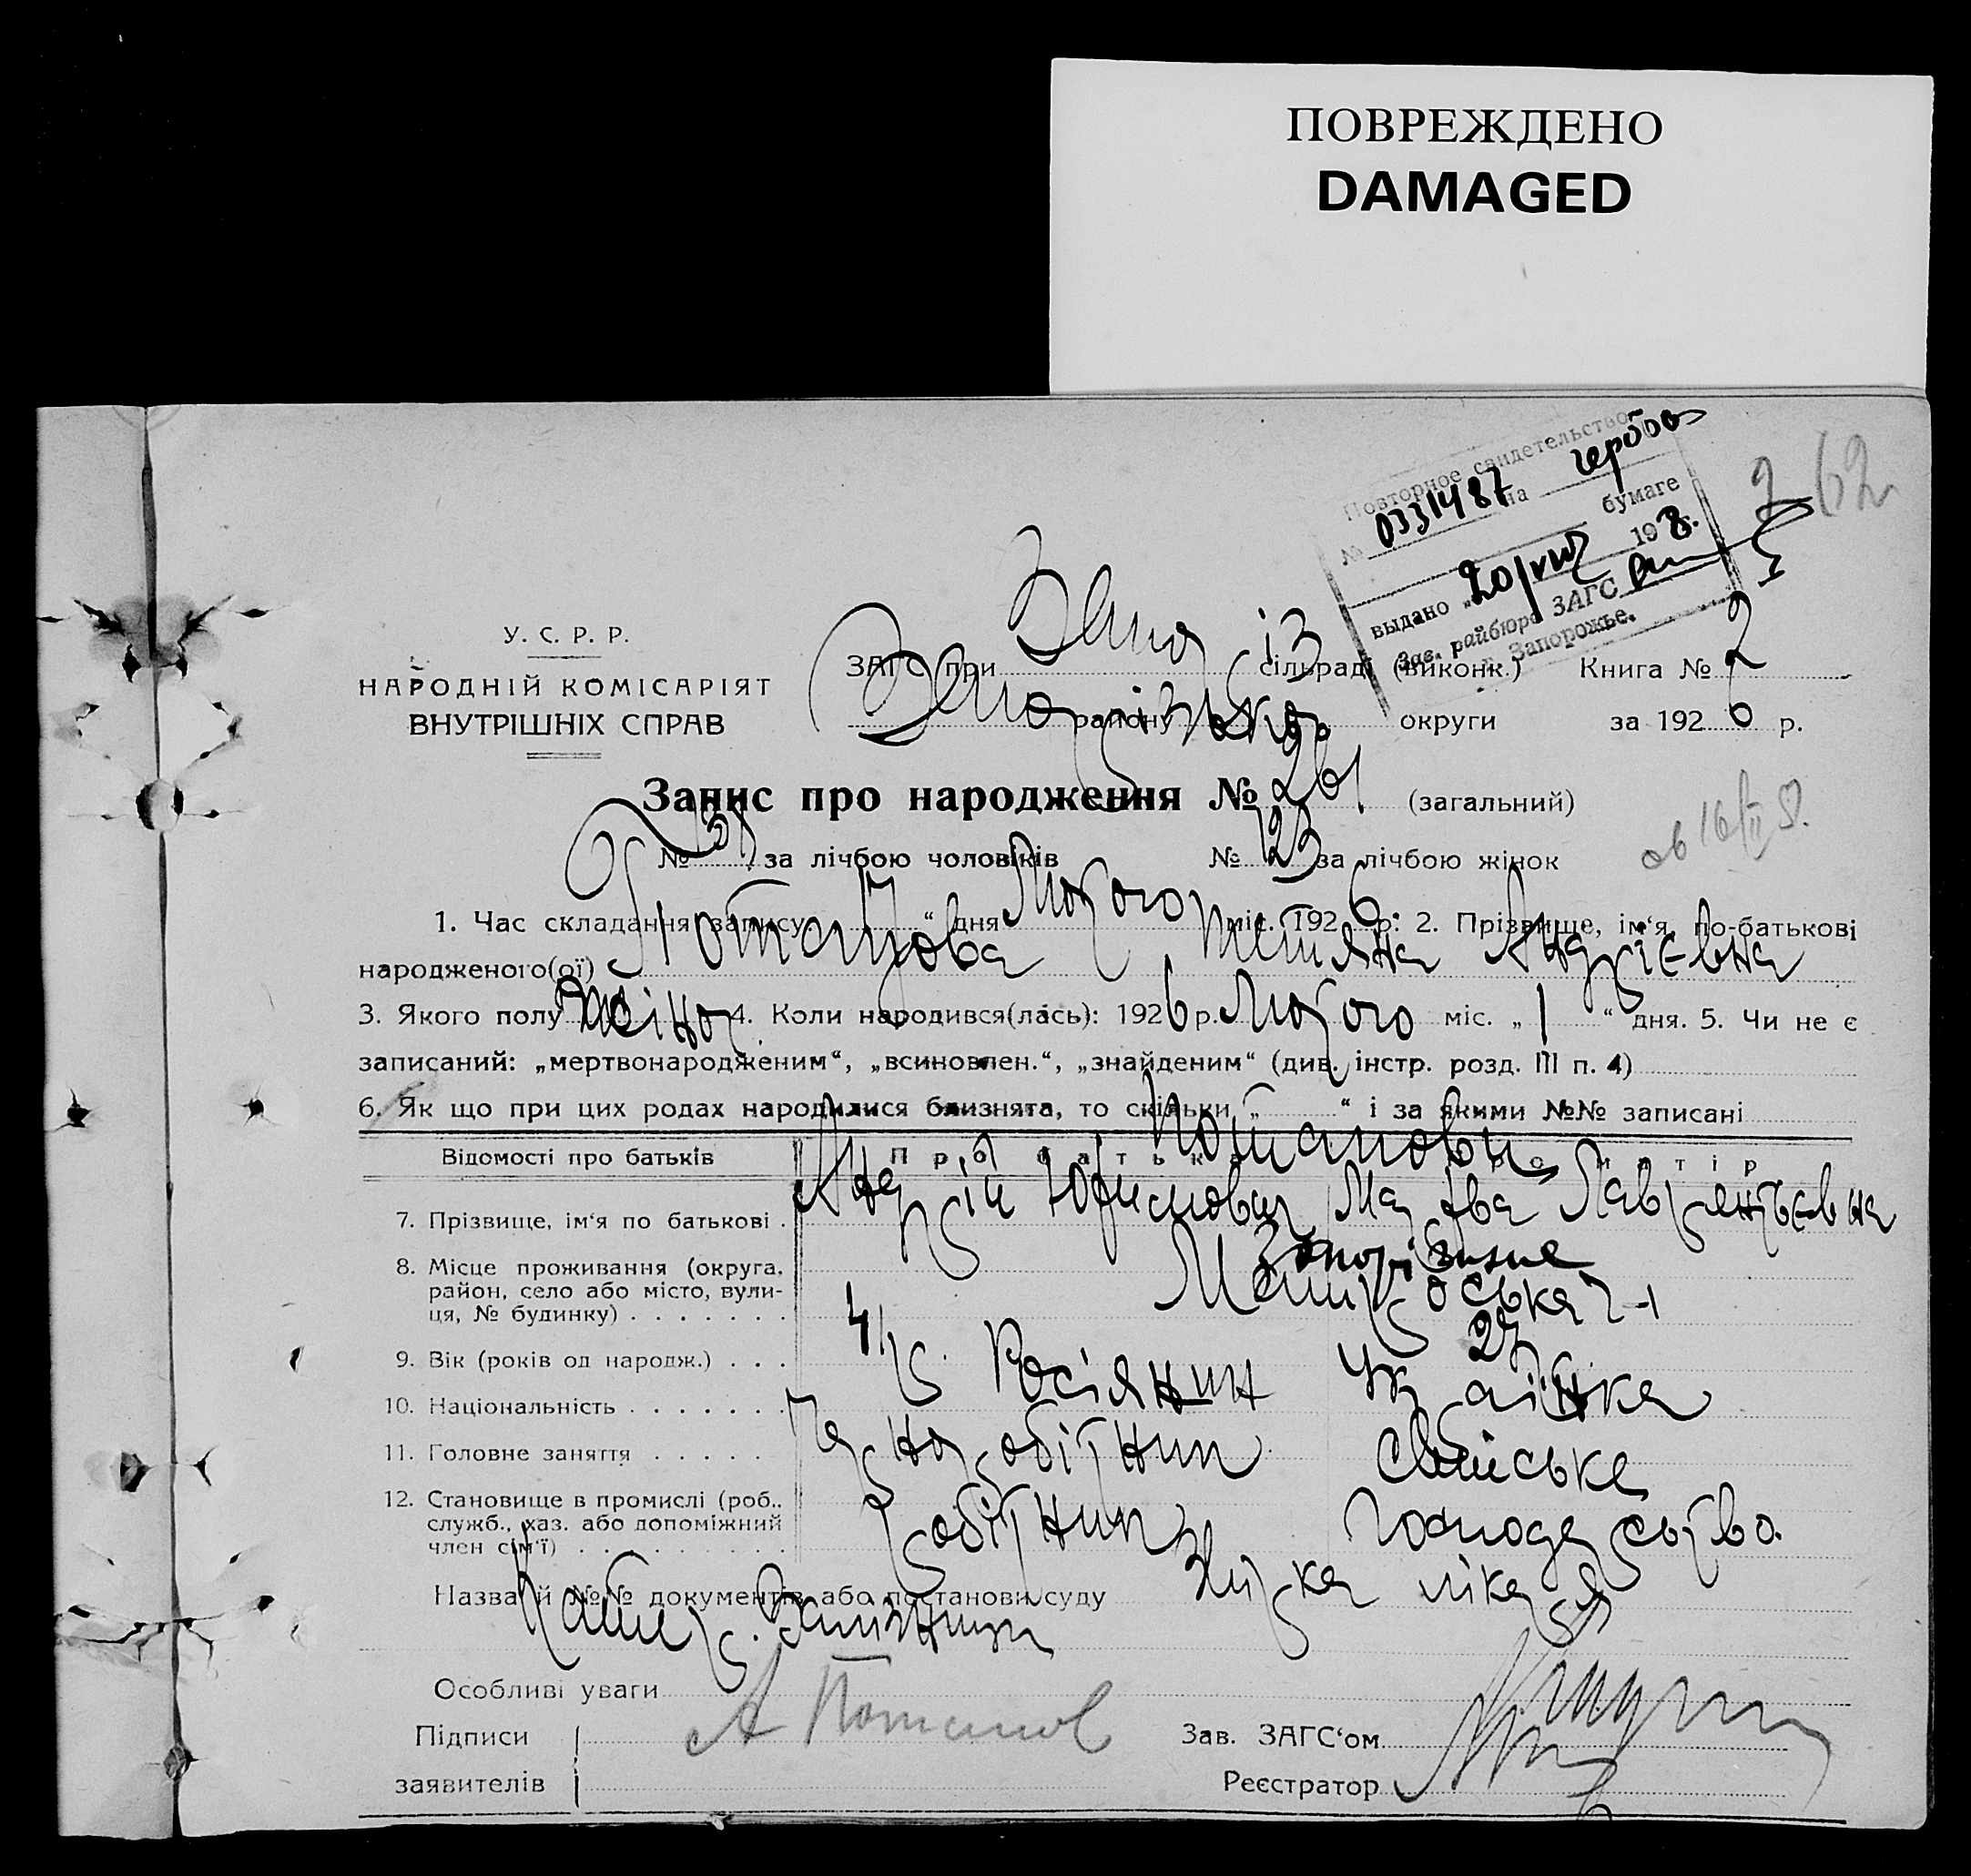 ПОВРЕЖДЕНО
DAMAGED
262
Повторное свидетельство
№ 0331487 на гербов
бумаге
выдано 198.
Зав. райбюро ЗАГС
г. Запорожье.
У. С. Р. Р.
НАРОДНІЙ КОМІСАРІЯТ
ВНУТРІШНІХ СПРАВ
ЗАГС при сільраді (виконк.) Книга № 2
району округи за 1926 р.
Запис про народження № 261 (загальний)
№ за лічбою чоловіків № 123 за лічбою жінок
1. Час складання запису: “ дня Лютого міс. 1926 р. 2. Прізвище, ім‘я, по-батькові
народженого(ої) Потапова Тетяна Андрієвна
3. Якого полу жіноч. 4. Коли народився(лась): 1926 р. Лютого міс. „1“ дня. 5. Чи не є
записаний: „мертвонародженим“, „всиновлен.“, „знайденим“ (див. інстр. розд. III п. 4)
6. Як що при цих родах народилися близнята, то скільки „ “ і за якими №№ записані
Відомості про батьків Про батька Про матір
Потапови
7. Прізвище, ім‘я по батькові . Андрій Юхимович Лаврентьєвна
8. Місце проживання (округа,
район, село або місто, вули-
ця, № будинку)
9. Вік (років од народж.) . . . 41 27
10. Національність Росіянин Українка
11. Головне заняття Чорноробітник Сільське
12. Становище в промислі (роб.,
служб., хаз. або допоміжний
член сім‘ї) робітник господарство
Назва й №№ документів або постанови суду
Особливі уваги
Підписи
заявителів А Потапов
Зав. ЗАГС‘ом
Реєстратор